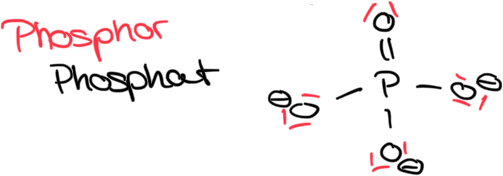 Phosphor
Phosphat
O
P
⊖O
O⊖
O⊖